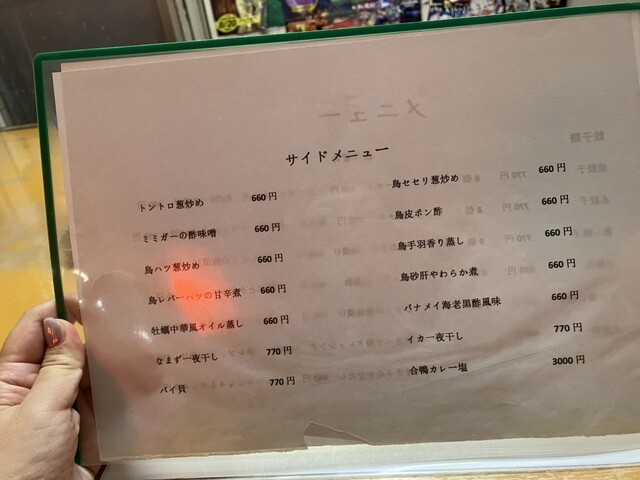 サイドメニュー
トントロ葱炒め 660 円
ミミガーの酢味噌 660 円
鳥ハツ葱炒め 660 円
鳥レバーハツの甘辛煮 660 円
牡蠣中華風オイル蒸し 660 円
なまず一夜干し 770 円
バイ貝 770 円
鳥セセリ葱炒め 660 円
鳥皮ポン酢 660 円
鳥手羽香り蒸し 660 円
鳥砂肝やわらか煮 660 円
バナメイ海老黒酢風味 660 円
イカ一夜干し 770 円
合鴨カレー塩 3000 円